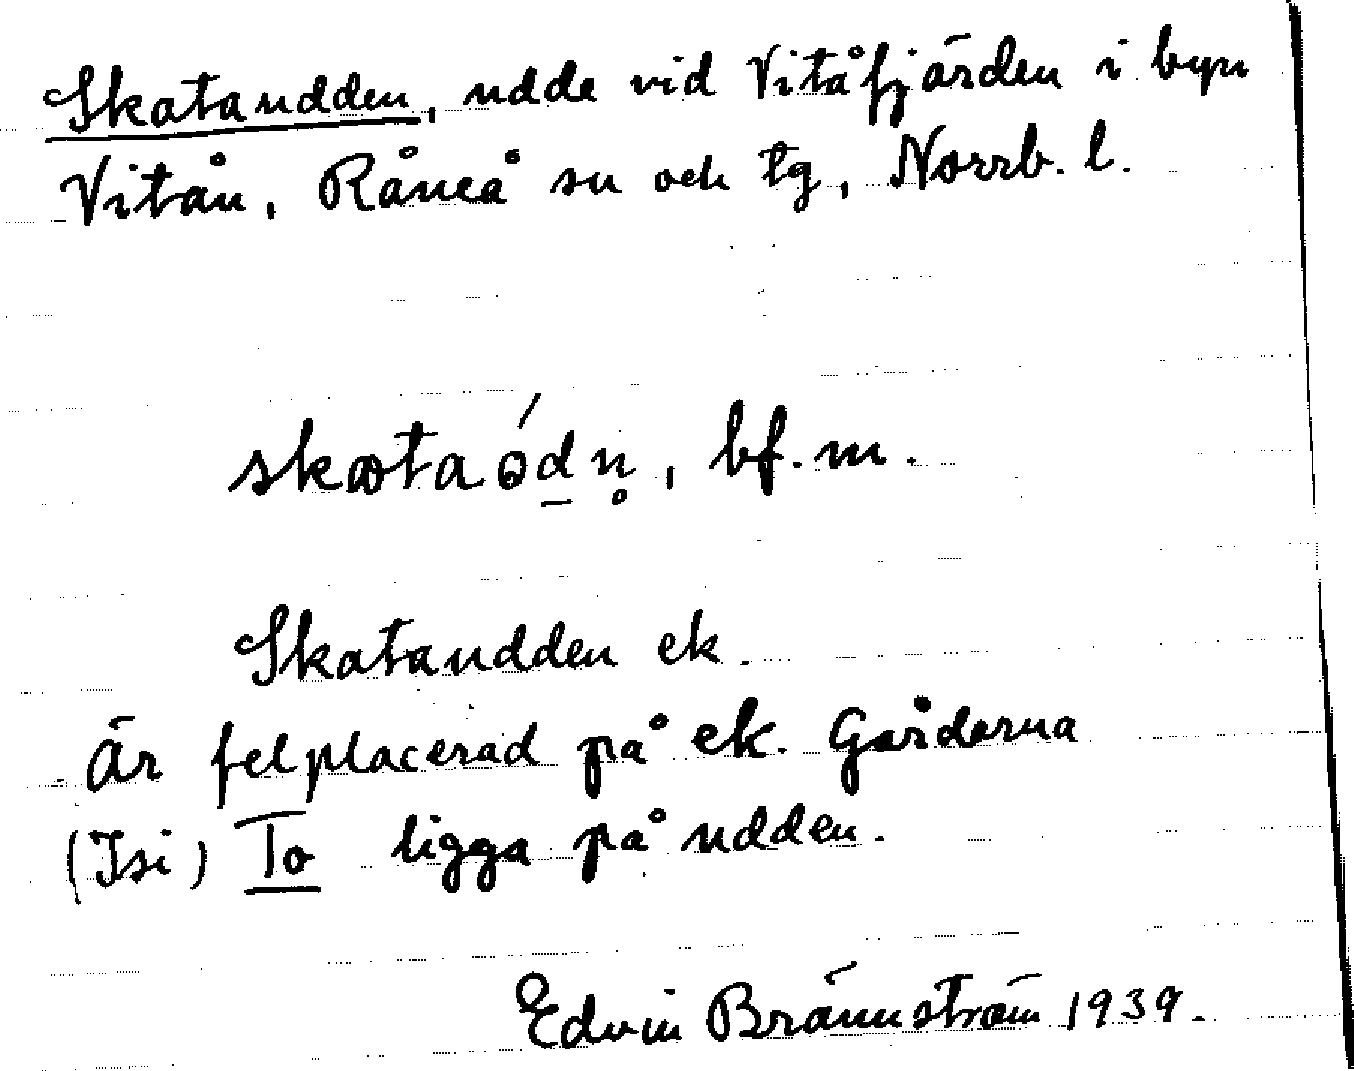 Skatandden, udde vid Vitåfjärden i byn
Vitån, Råneå sn och tg, Norrb. l.
skataódn̥, bf. m.
Skatandden ek.
Är felplacerad på ek. Gårdarna
(Isi) To ligga på udden.
Edvin Brännström 1939.